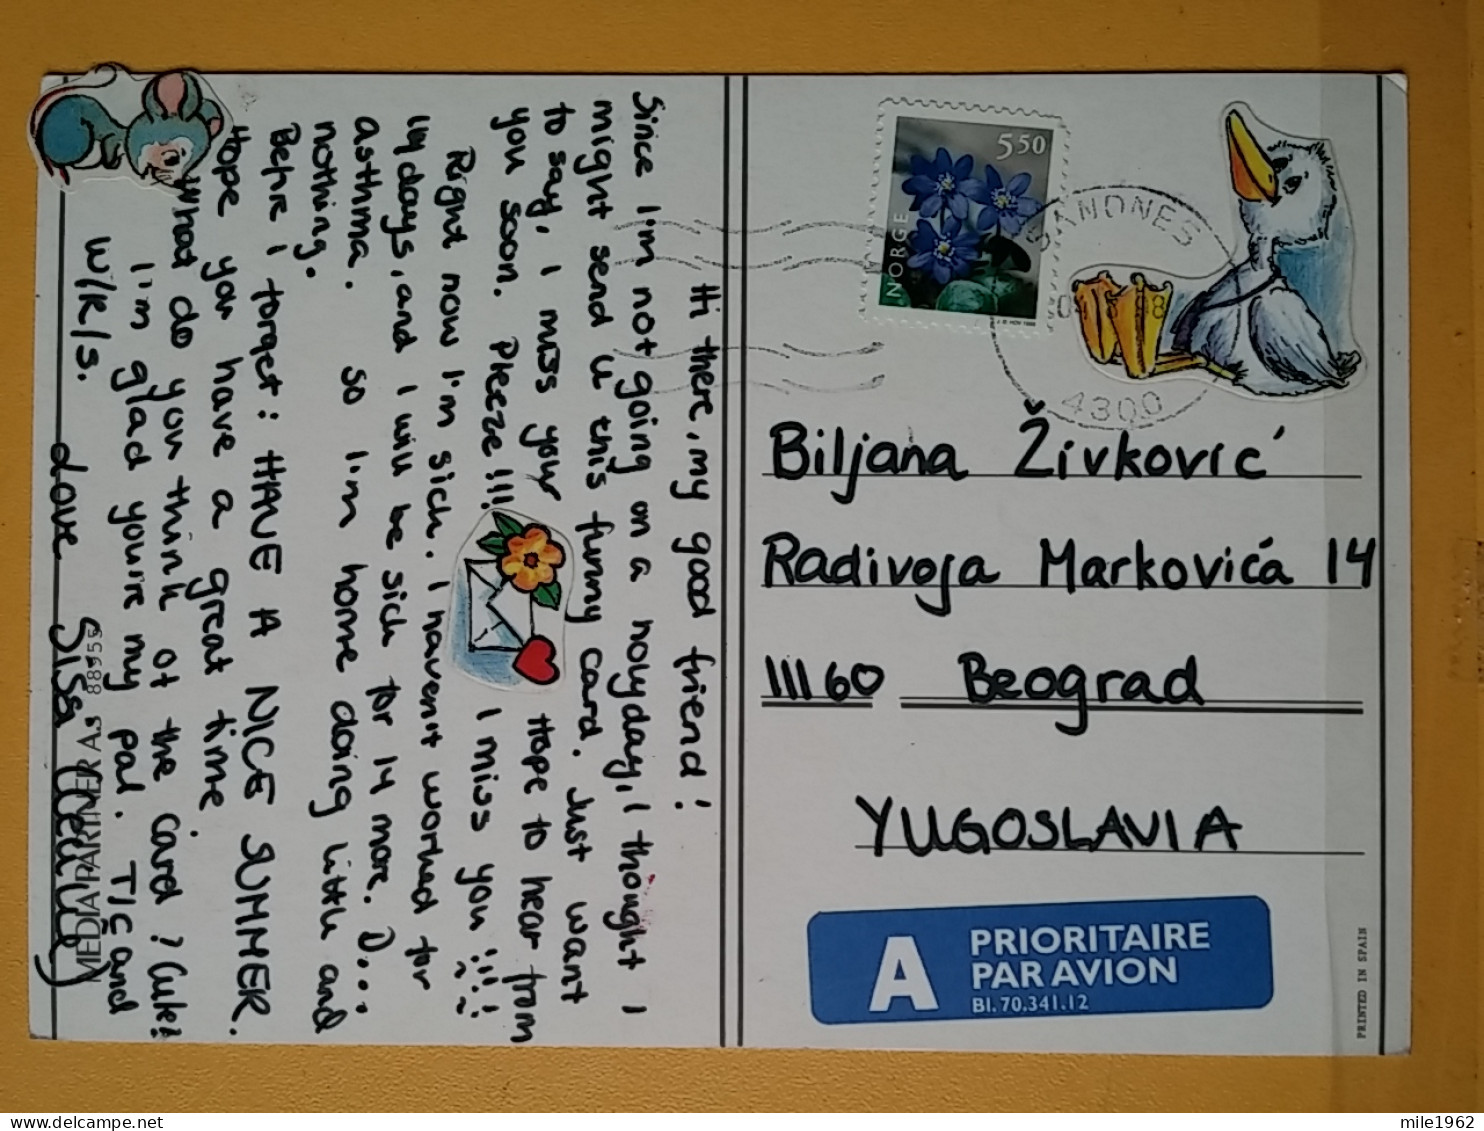 Hi there, my good friend!
Since I'm not going on a holyday, I thought I
might send u this funny card. Just want
to say, I miss your Hope to hear from
you soon. Pleeze!!! I miws you!!!!
Right now I'm sick. I havent worked for
14 days, and I will be sick for 14 more. D....
asthma. So I'm home doing little and
nothing.
Before I forget: HAVE A NICE SUMMER.
Hope you have a great time.
What do you think of the card? Cute?
I'm glad youre my pal. TIC and
W/R/S.
Love Sissi
MEDIA PARTNER A.S 88955
NORGE
5.50
SANDNES
4300
Biljana Živković
Radivoja Markovića 14
11160 Beograd
YUGOSLAVIA
A PRIORITAIRE
PAR AVION
Bl. 70.341.12
PRINTED IN SPAIN
mile1962